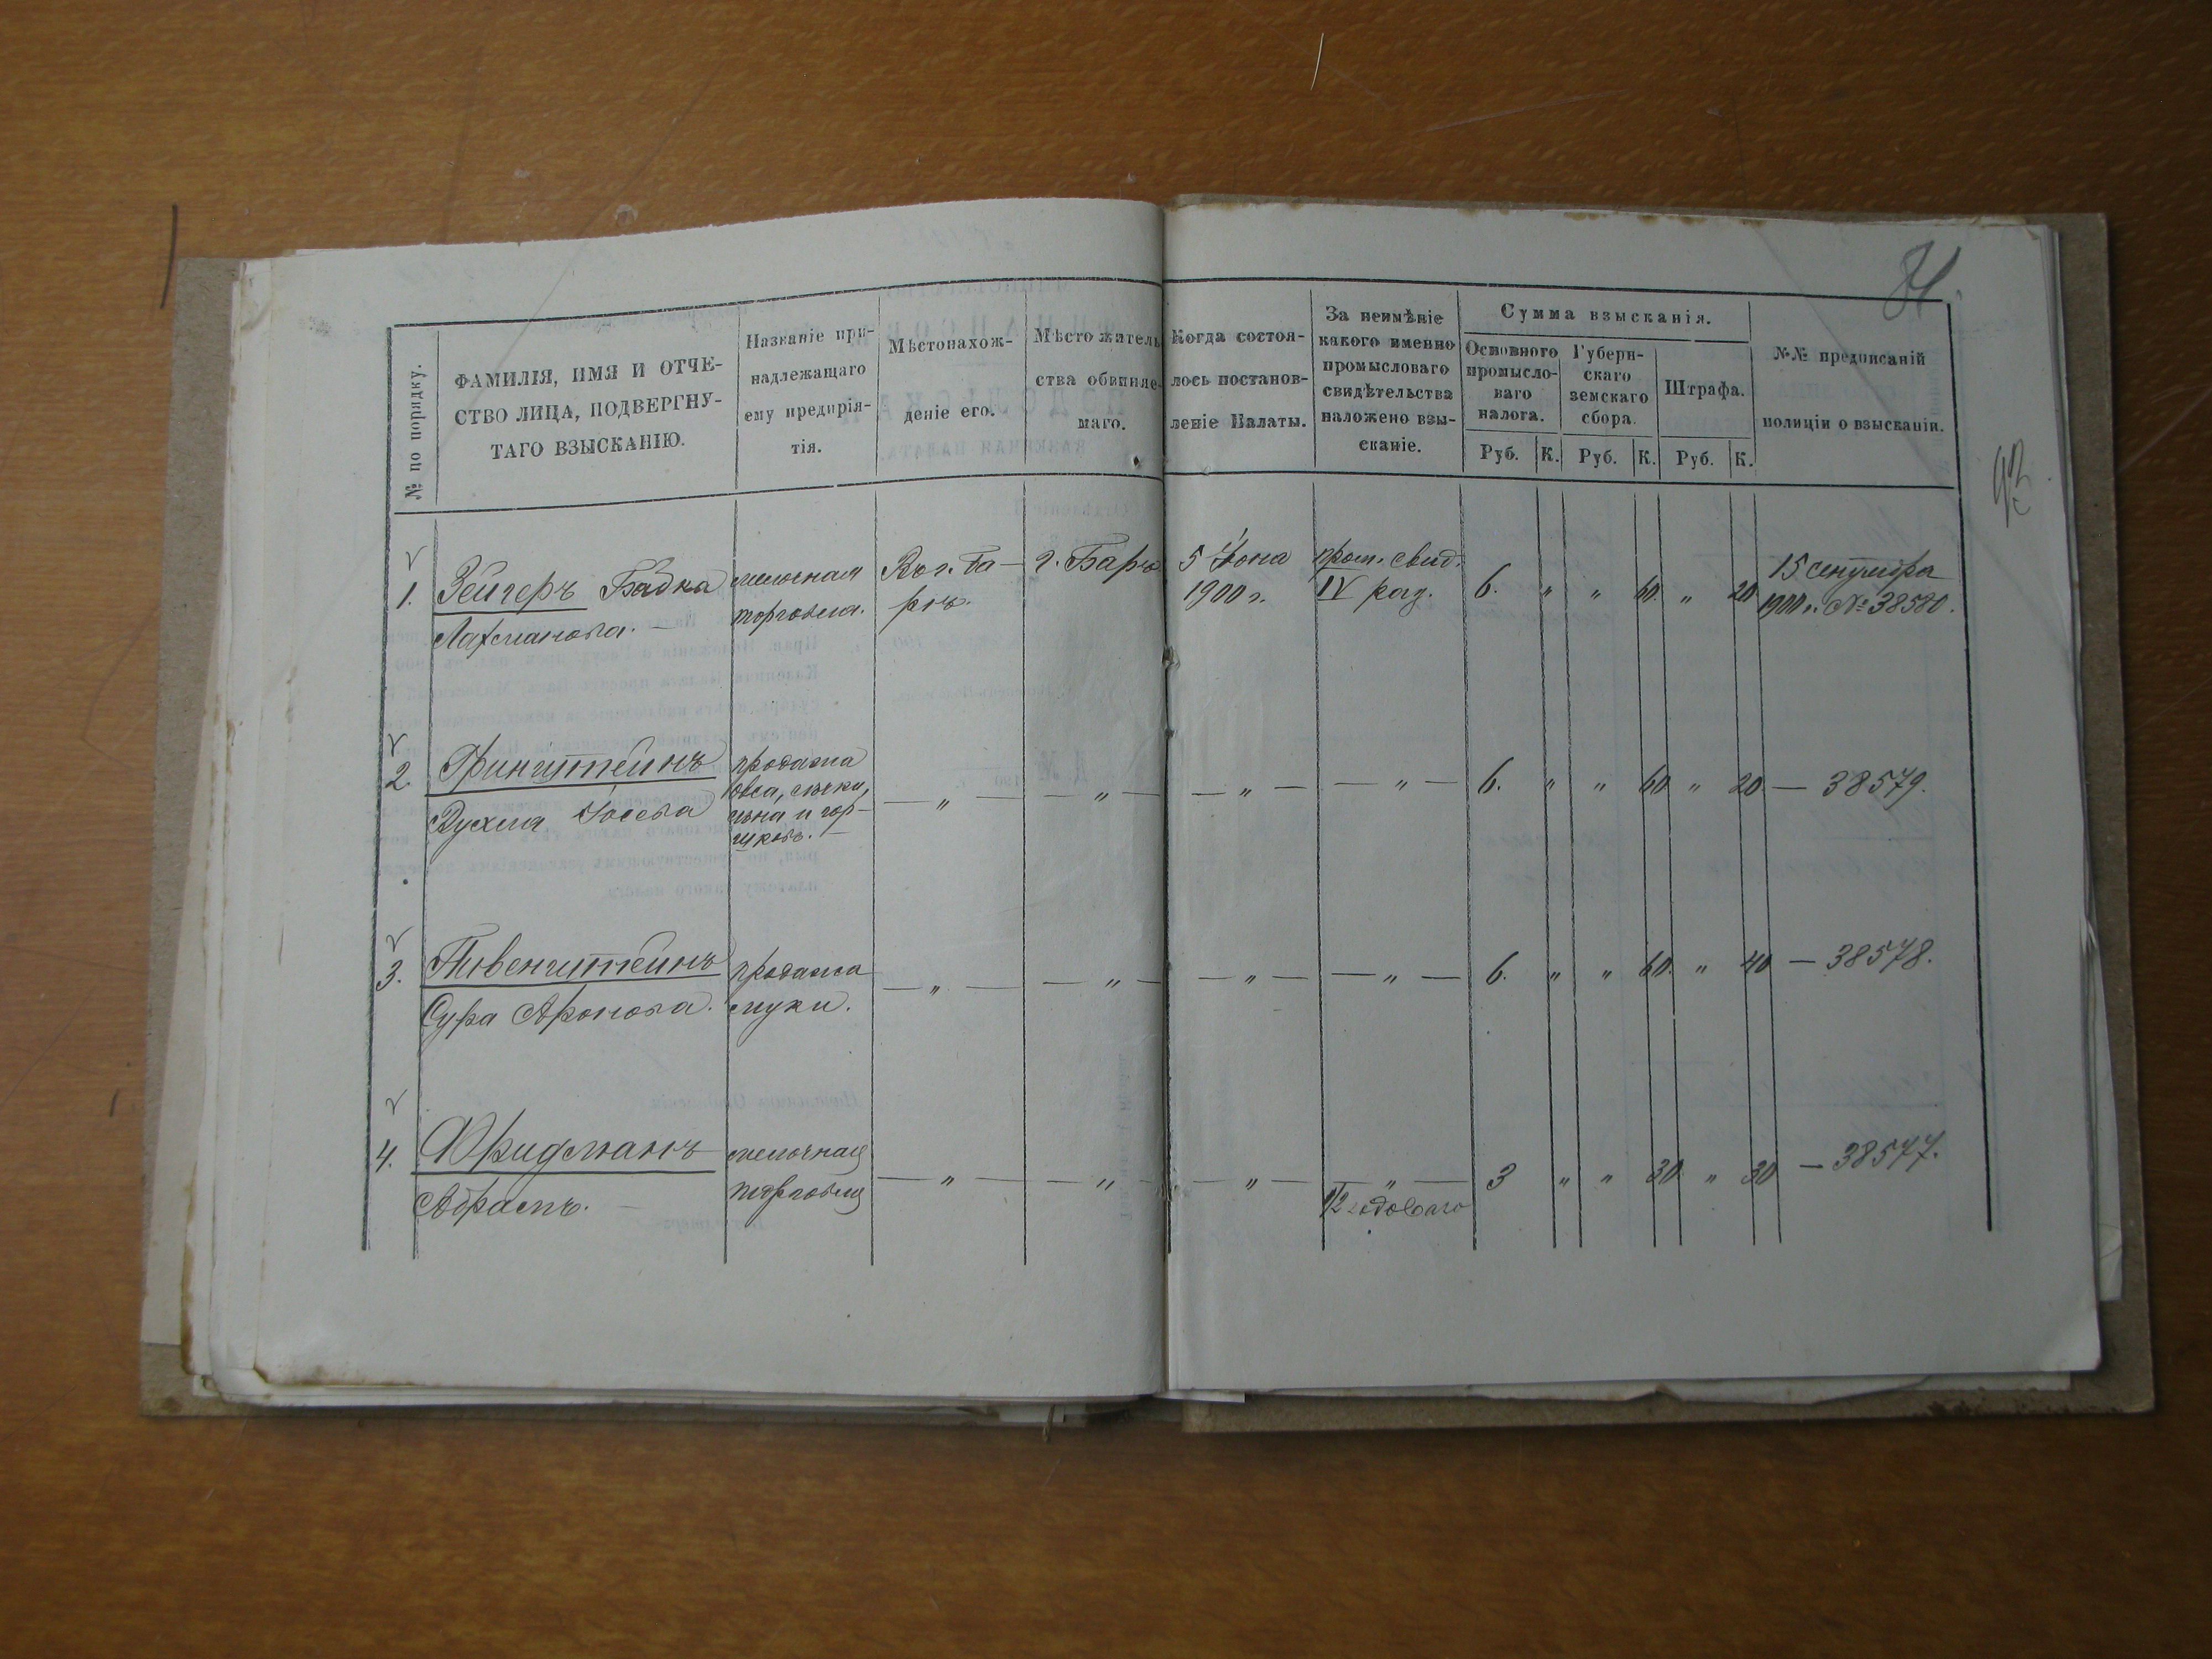 № по порядку.
ФАМИЛІЯ, ИМЯ И ОТЧЕ-
СТВО ЛИЦА, ПОДВЕРГНУ-
ТАГО ВЗЫСКАНІЮ.
Названіе при-
надлежащаго
ему предпрія-
тія.
Мѣстонахож-
деніе его.
Мѣсто житель
ства обвиняе-
маго.
Когда состоя-
лось постанов-
леніе Палаты.
За неимѣніе
какого именно
промысловаго
свидѣтельства
наложено взы-
сканіе.
Сумма взысканія.
Основного
промысло-
ваго
налога.
Губерн-
скаго
земскаго
сбора.
Штрафа.
Руб. К. Руб. К. Руб. К.
№№ предписаній
полиціи о взысканіи.
1. Зейгеръ Бадка
Лахманова. —
мелочная
торговля.
Въ г. Ба-
рѣ.
г. Баръ
5 Іюня
1900 г.
пром. свид.
IV раз.
6. " " 60. " 20
15 сентября
1900 г. № 38580.
2. Финштейнъ
Рухля Іосева
продажа
овса, муки,
сѣна и гор-
шковъ. —
— " — — " — — " — — " — 6. " " 60 " 20 — 38579.
3. Пивенштейнъ
Сура Аронова.
продажа
муки.
— " — — " — — " — — " — 6. " " 60. " 40 — 38578.
4. Фридманъ
Абрамъ. —
мелочная
торговля
— " — — " — — " — — " —
1/2 годоваго
3 " " 30 " 30 — 38577.